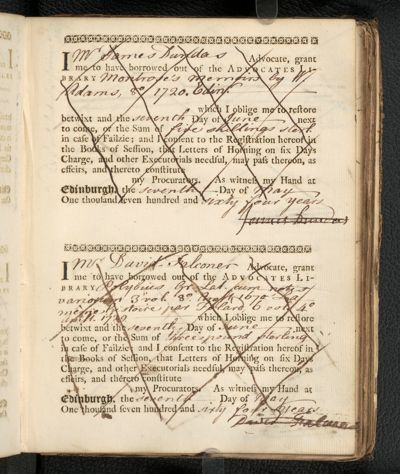 I Mr James Dundas Advocate, grant
me to have borrowed out of the ADVOCATES LI-
BRARY Montrose's memoirs by
Adams, 8º 1720. Edinr
which I oblige me to reſtore
betwixt and the seventh Day of June next
to come, or the Sum of five shillings sterl
in caſe of Failzie; and I conſent to the Regiſtration hereof in
the Books of Seſſion, that Letters of Horning on ſix Days
Charge, and other Executorials needful, may paſs thereon, as
effeirs, and thereto conſtitute
my Procurators. As witneſs my Hand at
Edinburgh, the seventh Day of May
One thouſand ſeven hundred and sixty four years
James Dundas
I Mr David Falconer Advocate, grant
me to have borrowed out of the ADVOCATES LI-
BRARY Polybius Gr. Lat. cum notis
variorum 3 vol. 8º 1670
par 6 vol. 4º
which I oblige me to reſtore
betwixt and the seventh Day of June next
to come, or the Sum of three pound sterling
in caſe of Failzie; and I conſent to the Regiſtration hereof in
the Books of Seſſion, that Letters of Horning on ſix Days
Charge, and other Executorials needful, may paſs thereon, as
effeirs, and thereto conſtitute
my Procurators. As witneſs my Hand at
Edinburgh, the seventh Day of May
One thouſand ſeven hundred and sixty four years
David Falconer